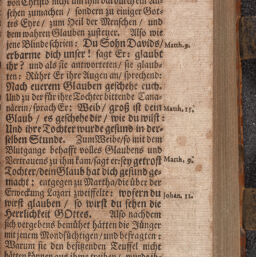 von Christo nicht um ihm
sehen zumachen / sondern zu einiger Got-
tes Ehre / zum Heil der Menschen / und
dem wahren Glauben zusteuer. Also wie
jene Blinde schrien: Du Sohn Davids / Matth. 9.
erbarme dich unser! sagt Er: glaubt
ihr? und als sie antworteten / sie glaub-
ten: Rühret Er ihre Augen an / sprechend:
Nach euerem Glauben geschehe euch.
Und zu der für ihre Tochter bittende Cana-
näerin / sprach Er: Weib / groß ist dein Matth. 15.
Glaub / es geschehe dir / wie du wilst:
Und ihre Tochter wurde gesund in der-
selben Stunde. Zum Weibe / so mit dem
Blutgange behafft volles Glaubens und
Vertrauens zu ihm kam / sagt er: sey getrost Matth. 9.
Tochter / dein Glaub hat dich gesund ge-
macht: entgegen zu Martha / die über der
Erweckung Lazari zweiffelte: wofern du Johan. 11.
wirst glauben / so wirst du sehen die
Herrlichkeit GOttes. Also nachdem
sich vergebens bemühet hätten die Jünger
mit jenem Mondsüchtigen / und befragten:
Warum sie den besitzenden Teuffel nicht
hätten können aus ihme treiben /